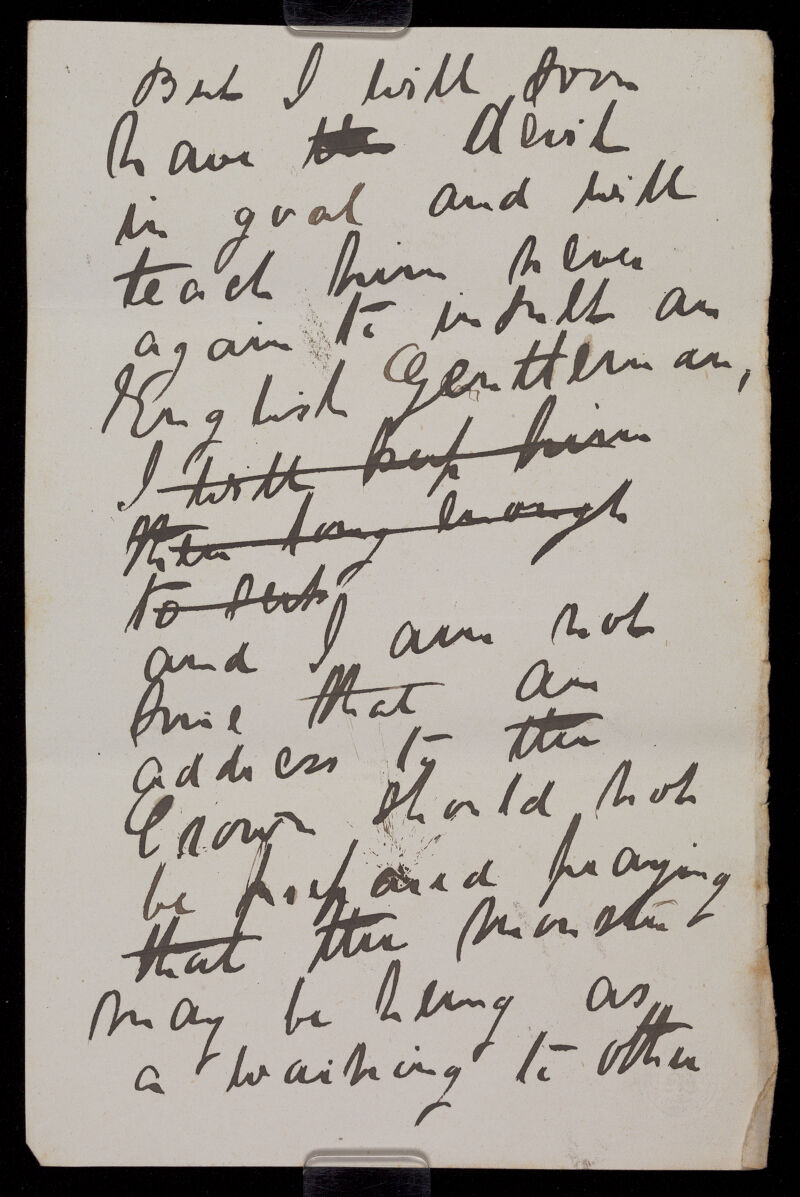 But I will soon
have the devil
in goal and will
teach him never
again to insult an
English Gentleman,
I will keep him
there long enough
to
and I am not
sure that an
address to the
Crown should not
be prepared praying
that the monster
may be hung as
a warning to other